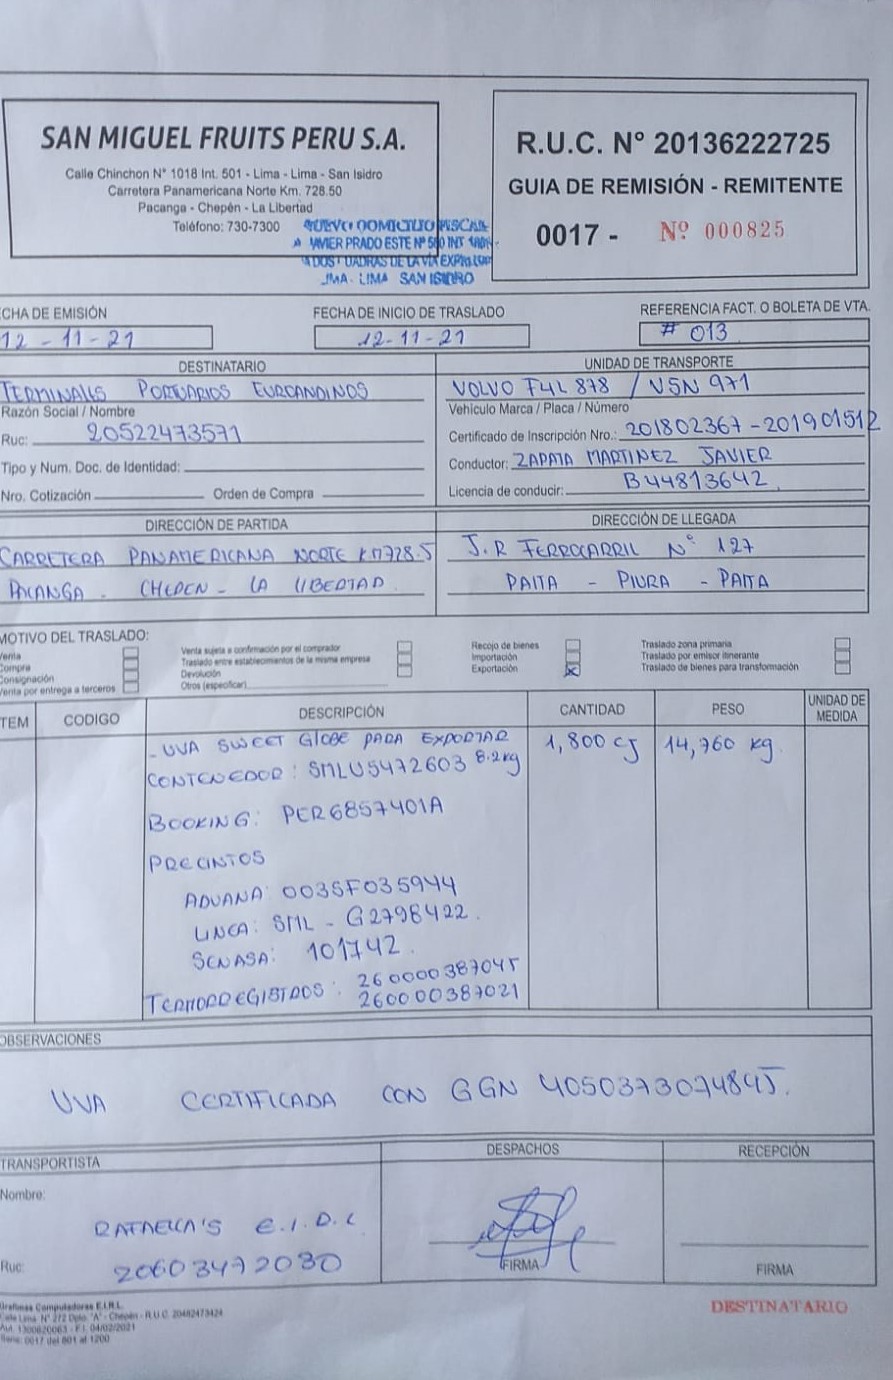 SAN MIGUEL FRUITS PERU S.A.
Calle Chinchon N° 1018 Int. 501 - Lima - Lima - San Isidro
Carretera Panamericana Norte Km. 728.50
Pacanga - Chepén - La Libertad
Teléfono: 730-7300
NUEVO DOMICILIO FISCAL
JAVIER PRADO ESTE Nº 560 INT
CUADRAS DE LA VIA EXPRESA
LIMA - LIMA SAN ISIDRO
R.U.C. N° 20136222725
GUIA DE REMISIÓN - REMITENTE
0017 - Nº 000825
CHA DE EMISIÓN
12 - 11 - 21
FECHA DE INICIO DE TRASLADO
12-11-21
REFERENCIA FACT. O BOLETA DE VTA.
# 013
DESTINATARIO
TERMINALES PORTUARIOS EUROANDINOS
Razón Social / Nombre
Ruc: 20522473571
Tipo y Num. Doc. de Identidad:
Nro. Cotización Orden de Compra
UNIDAD DE TRANSPORTE
VOLVO F4L 878 / V5N 971
Vehículo Marca / Placa / Número
Certificado de Inscripción Nro.: 201802367 - 201901512
Conductor: ZAPATA MARTINEZ JAVIER
Licencia de conducir: B44813642
DIRECCIÓN DE PARTIDA
CARRETERA PANAMERICANA NORTE KM728.5
PACANGA - CHEPEN - LA LIBERTAD
DIRECCIÓN DE LLEGADA
J.R FERROCARRIL N° 127
PAITA - PIURA - PAITA
MOTIVO DEL TRASLADO:
Venta
Compra
Consignación
Venta por entrega a terceros
Venta sujeta a confirmación por el comprador
Traslado entre establecimientos de la misma empresa
Devolución
Otros (especificar)
Recojo de bienes
Importación
Exportación X
Traslado zona primaria
Traslado por emisor itinerante
Traslado de bienes para transformación
TEM CODIGO DESCRIPCIÓN CANTIDAD PESO UNIDAD DE MEDIDA
- UVA SWEET GLOBE PARA EXPORTAR 1,800 CJ 14,760 kg.
8.2kg
CONTENEDOR: SMLU5472603
BOOKING: PER6857401A
PRECINTOS
ADUANA: 003SF035944
LINEA: SML - G2798422.
SENASA: 101742.
TERMORREGISTROS: 260000387045
260000387021
OBSERVACIONES
UVA CERTIFICADA CON GGN 4050373074845.
TRANSPORTISTA
Nombre:
RAFAELLA'S E.I.R.L
Ruc: 20603472030
DESPACHOS
FIRMA
RECEPCIÓN
FIRMA
Graficas Computadoras E.I.R.L.
Calle Lima N° 272 Dpto. "A" - Chepén - R.U.C. 20482473424
Aut. 1300620063 - F.I. 04/02/2021
Serie: 0017 del 801 al 1200
DESTINATARIO